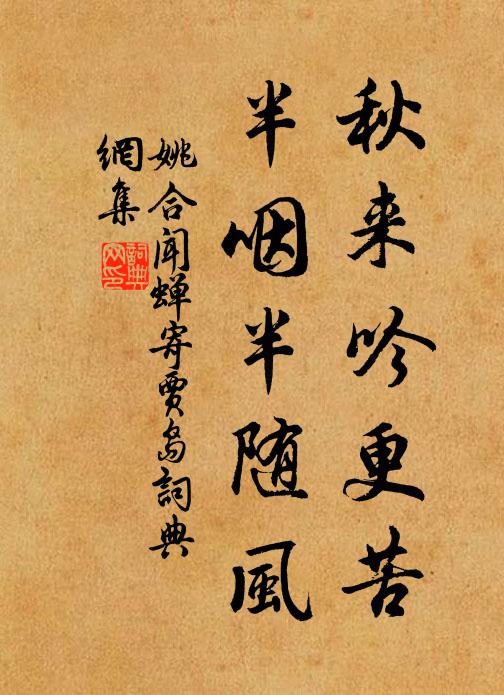 秋来吟更苦
半咽半随風
姚合聞蝉寄賈島詞典
網集
詞典
网印